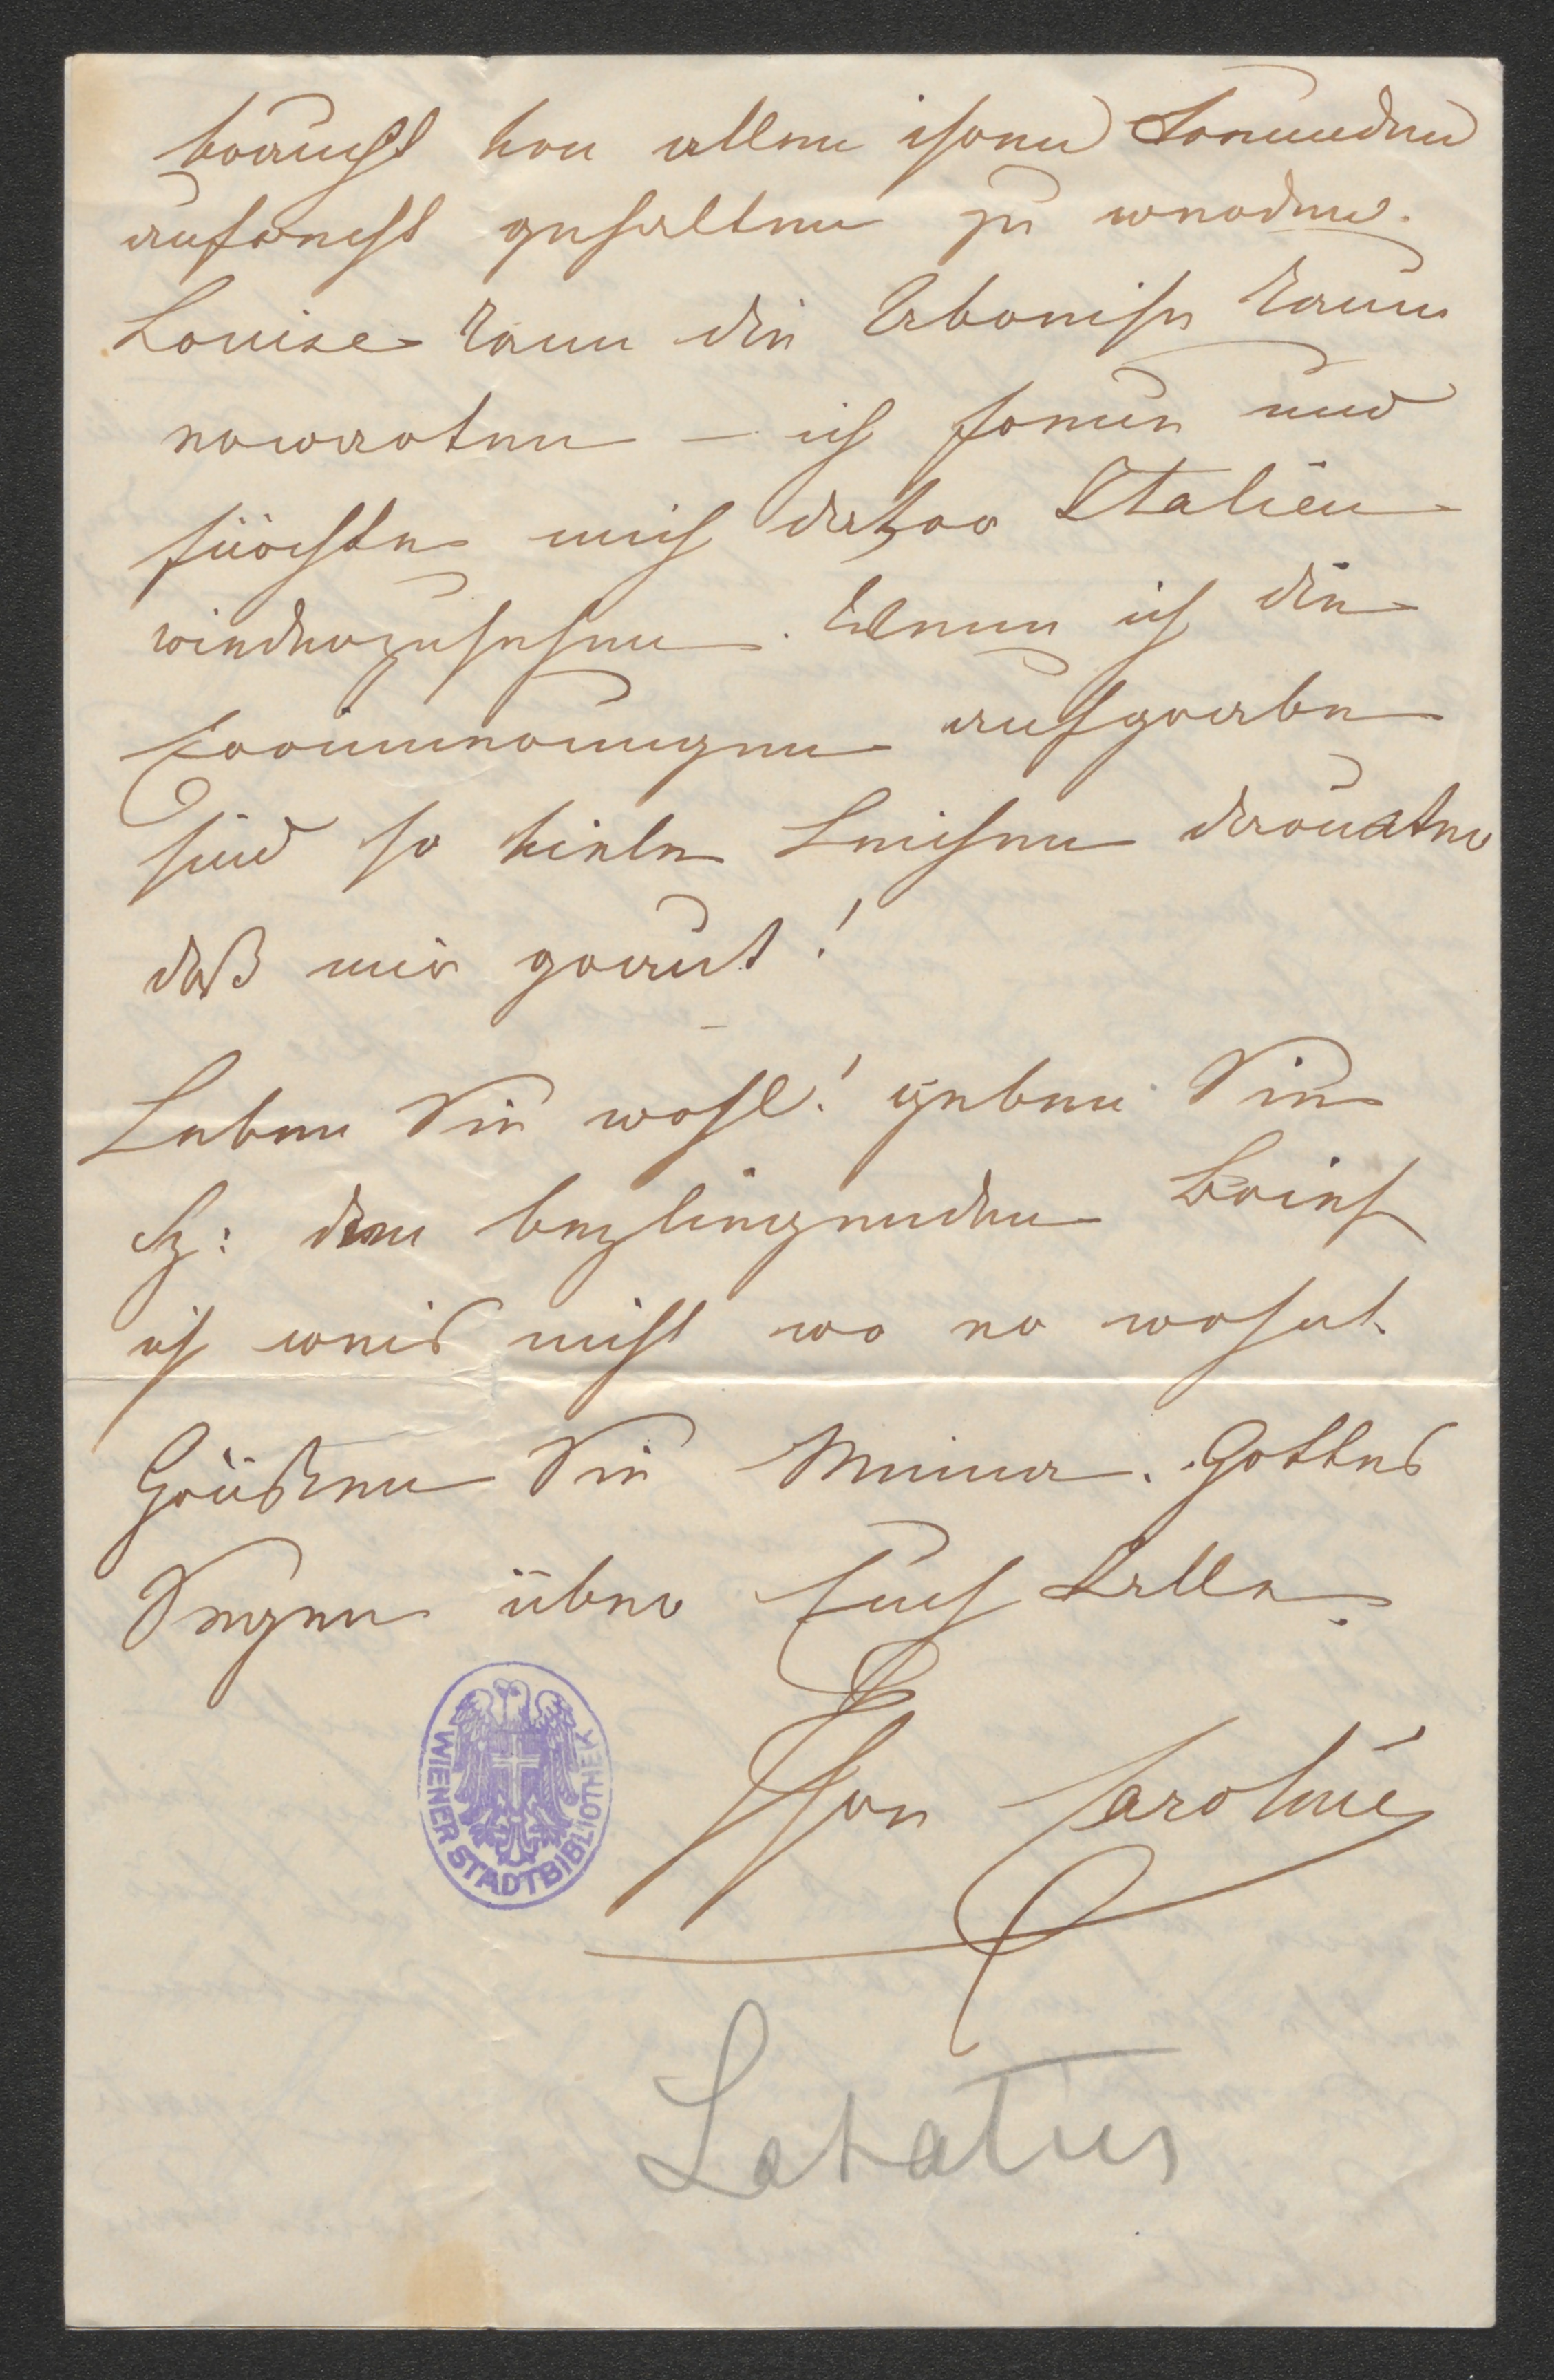 braucht von allen ihren Freunden
aufrecht gehalten zu werden.
Louise kann die Abreise kaum
erwarten – ich freue und
fürchte mich davor Italien
wiederzusehen. Wenn ich die
Erinnerungen aufgrabe
sind so viele Leichen darunter
daß mir graut!
Leben Sie wohl! geben Sie
Sz: den beyliegenden Brief
ich weis nicht wo er wohnt.
Grüßen Sie Minna. Gottes
Segen über Euch Alle.
Ihre Caroline
WIENER STADTBIBLIOTHEK